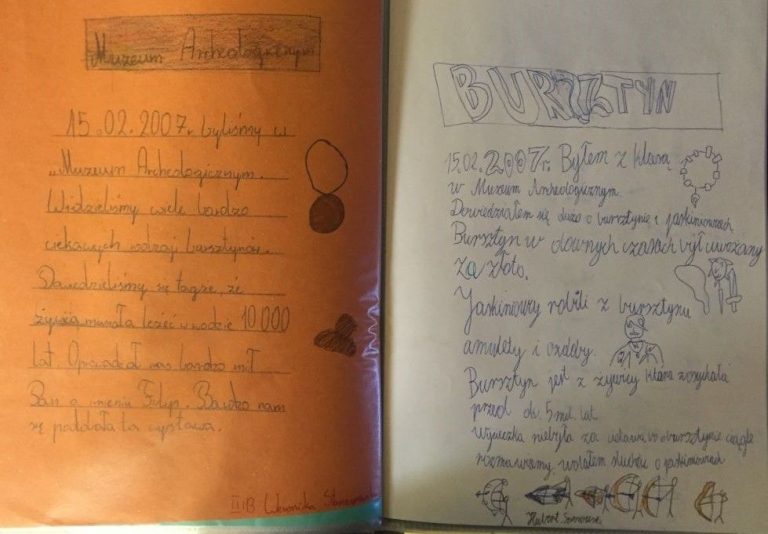 Muzeum Archeologicznym
15.02.2007r. byliśmy w
"Muzeum Archeologicznym.
Widzieliśmy wiele bardzo
ciekawych rodzaji bursztynów.
Dowiedzieliśmy się tagże, że
żywica musiała leżeć w wodzie 10 000
lat. Oprowadzał nas bardzo mił
Pan o imieniu Filip. Bardzo nam
się podobała ta wystawa.
III B Weronika
BURSZTYN
15.02.2007r. Byłem z klasą
w Muzeum Archeologicznym.
Dowiedziałem się dużo o bursztynie i jaskiniowcach
Bursztyn w dawnych czasach był uważany
za złoto.
Jaskiniowcy robili z bursztynu
amulety i ozdoby.
Bursztyn jest z żywicy która zaschła
przed ok. 5 mil. lat.
Wycieczka niebyła za udana bo o bursztynie ciągle
rozmawiamy wolałem słuchać o jaskiniowcach
Hubert